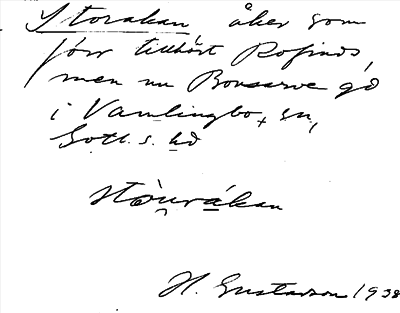 Storakan åker som
förr tillhört Rofinds,
men nu Bonsarve gd
i Vamlingbo sn,
Gotl. s. hd
stòu̯rákan
H. Gustavson 1938